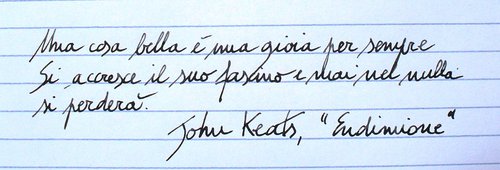 Una cosa bella è una gioia per sempre
Si accresce il suo fascino e mai nel nulla
si perderà.
John Keats, "Endimione"